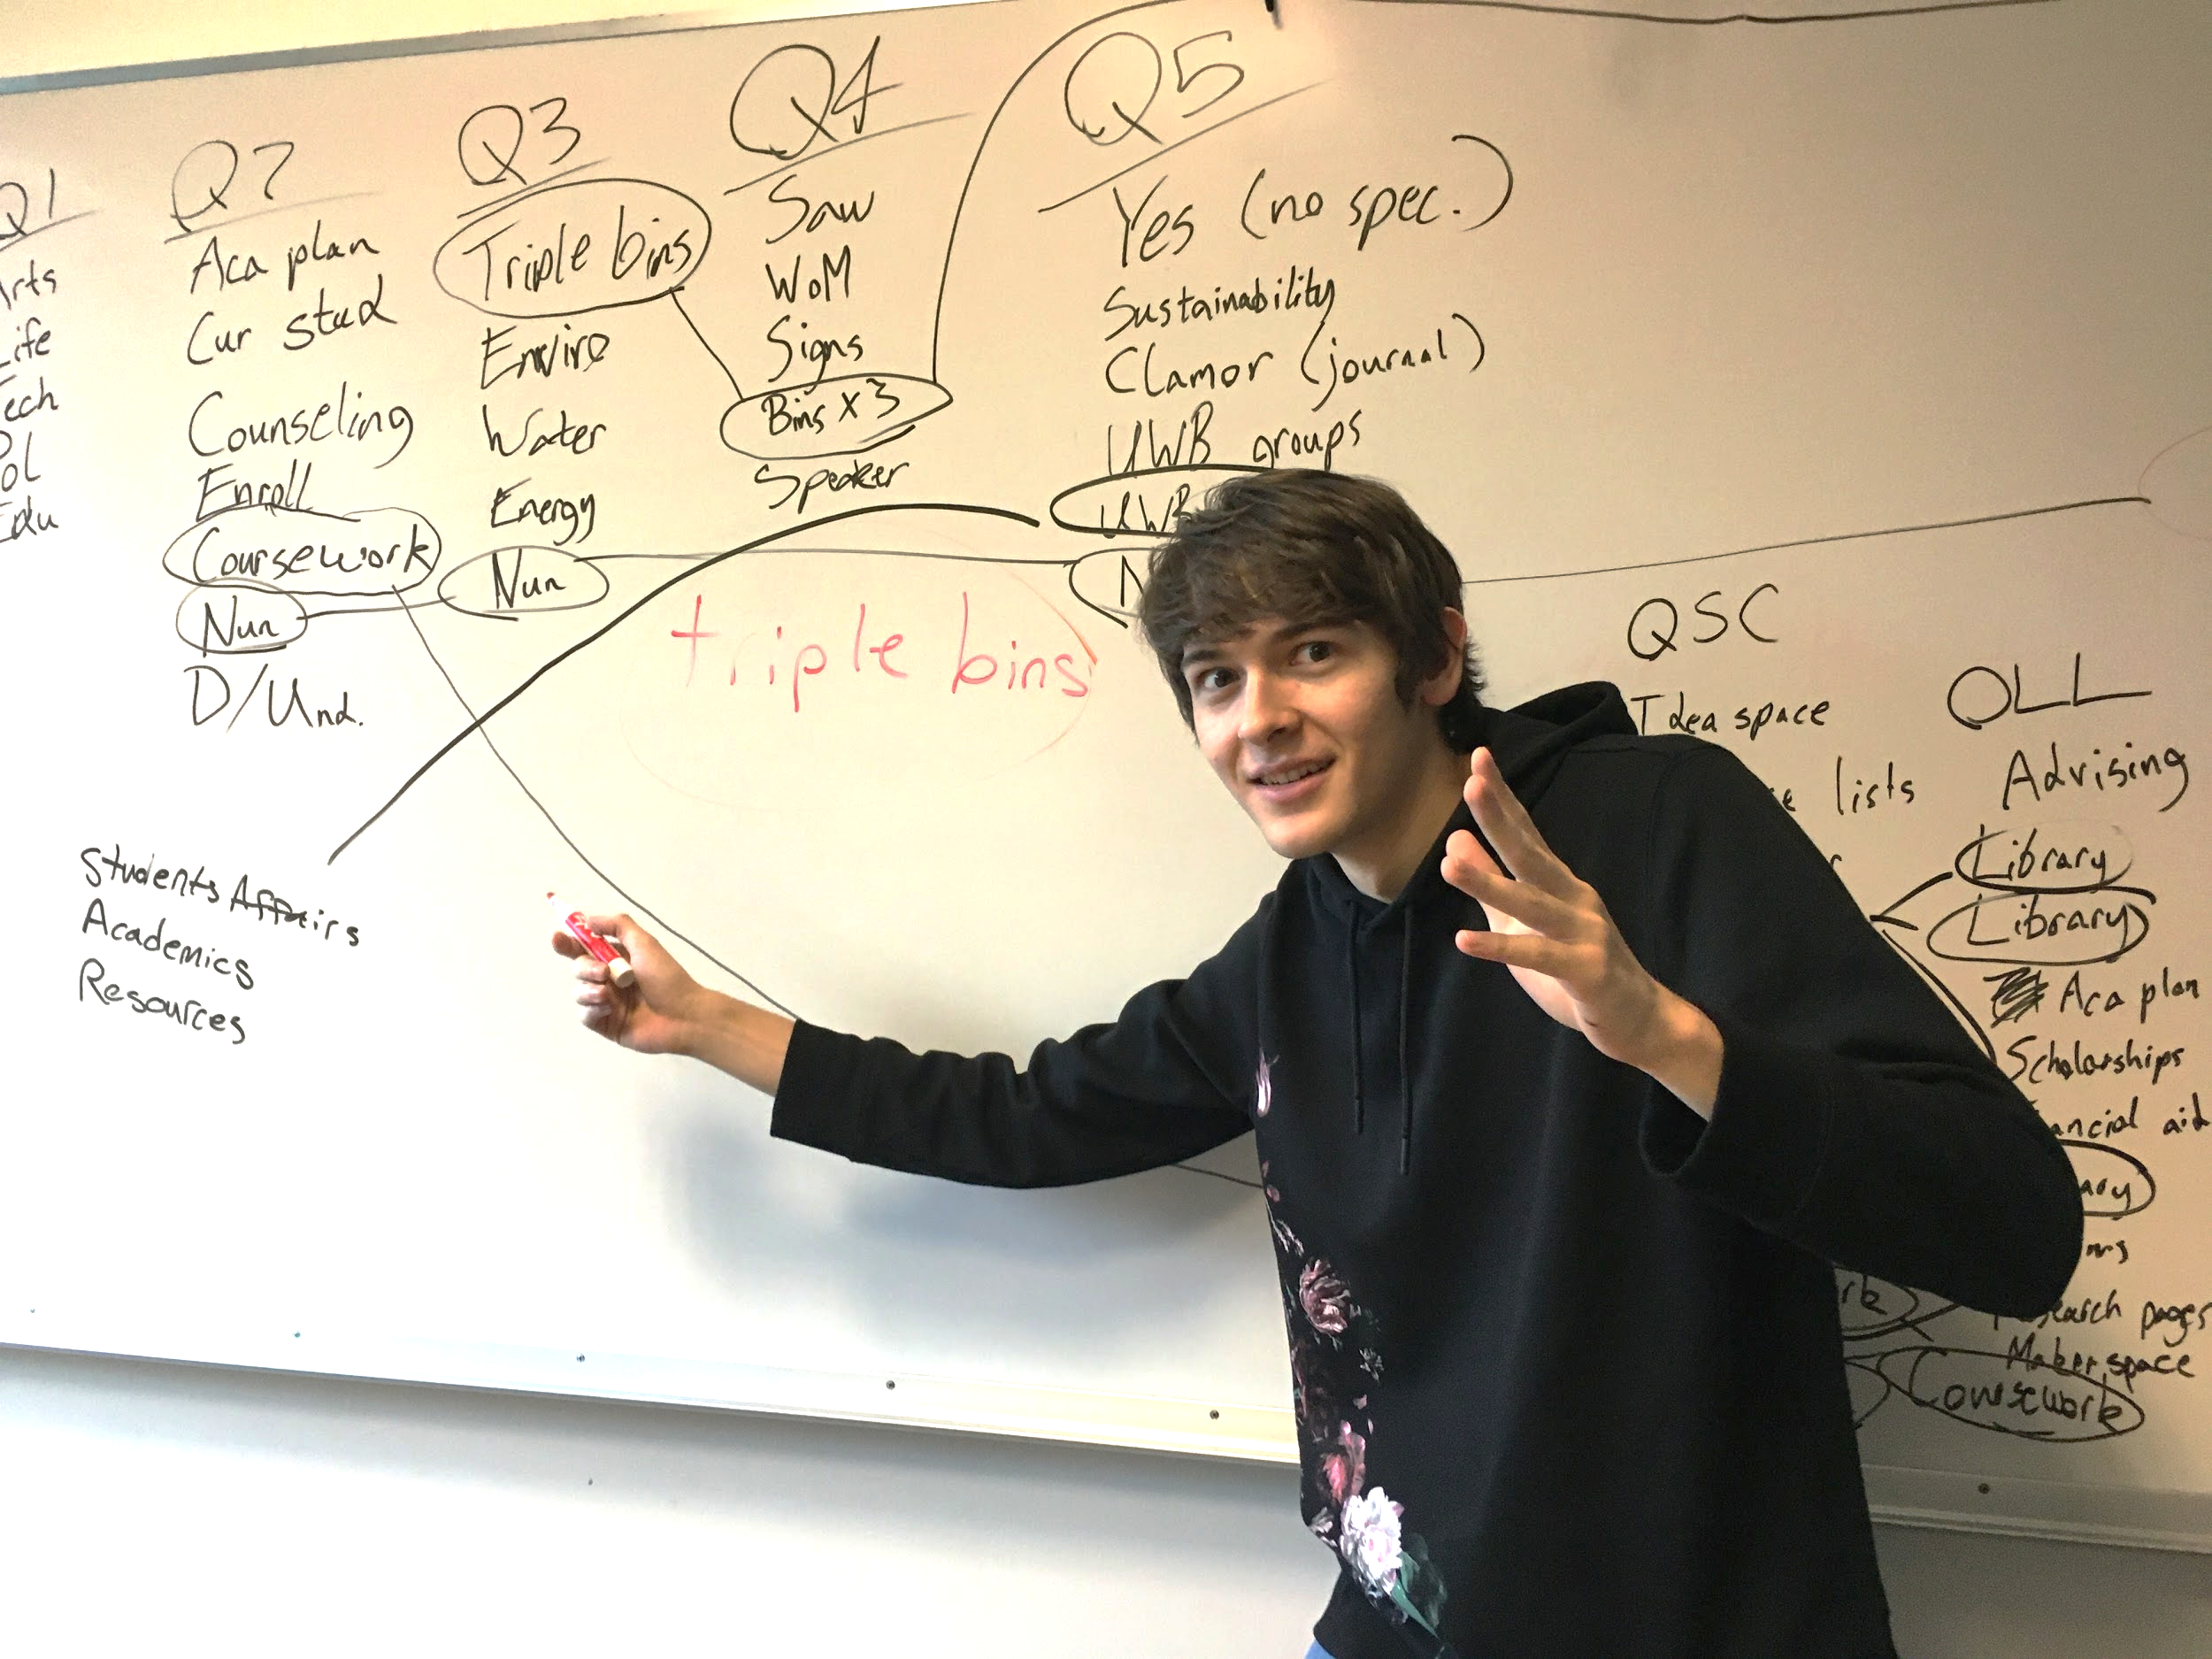 Q1
Q2
Aca plan
Cur stud
Counseling
Enroll
Coursework
Nun
D/Und.
Q3
Triple bins
Enviro
Water
Energy
Nun
Q4
Saw
WoM
Signs
Bins x 3
Speaker
Q5
Yes (no spec.)
Sustainability
Clamor (journal)
UWB groups
UWB
triple bins
Students Affairs
Academics
Resources
QSC
Idea space
lists
OLL
Advising
Library
Library
Aca plan
Scholarships
aid
pages
Maker space
Coursework